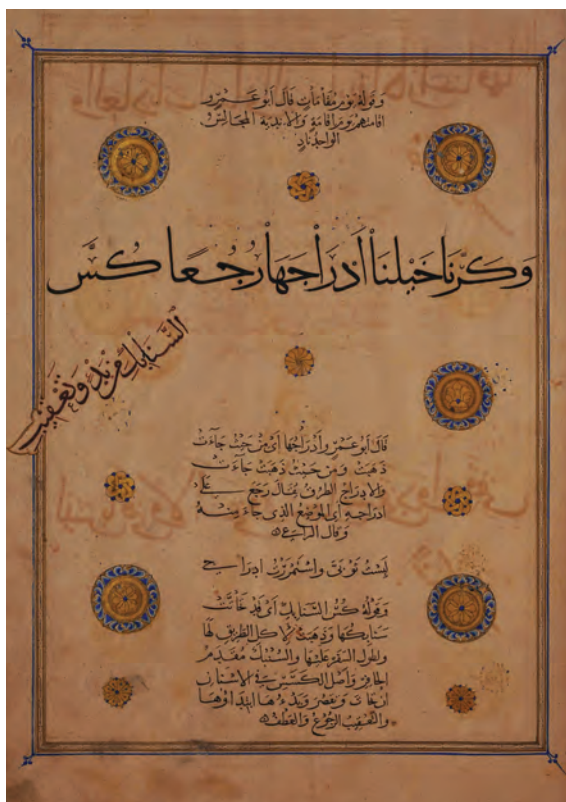 وَقَوْلُهُ يَوْم مُقَامَاتٍ قَالَ أَبُو عَمْرٍو
اقامتهم يوم اقامةٍ والاندية المجالس
الواحد نادٍ
وَكَرُّنَا خَيْلَنَا أَدْرَاجَهَا رُجُعًا كُسَّ
السَّنَابِكِ مِنْ بَدْءٍ وَتَعْقِيبِ
قَالَ أَبُو عَمْرٍو أَدْرَاجُهَا أَيْ مِنْ حَيْثُ جَاءَتْ
ذَهَبَتْ وَمِنْ حَيْثُ ذَهَبَتْ جَاءَتْ
والادراج الطرق يقال رجع على
ادراجه أي الموضع الذي جاء منه
وقال الراعي
لَيْسَتْ واستمررت ادراجي
وَقَوْلُهُ كُسّ السَّنَابِك أي قد
سنابكها وذهبت الطريق لها
وطول السفر عليها والسُّنْبُك مُقَدَّمُ
الحافر وأصل الكسس في الاسنان
وتقصر وبدءها ابتداؤها
والتعقيب الرجوع والعطف